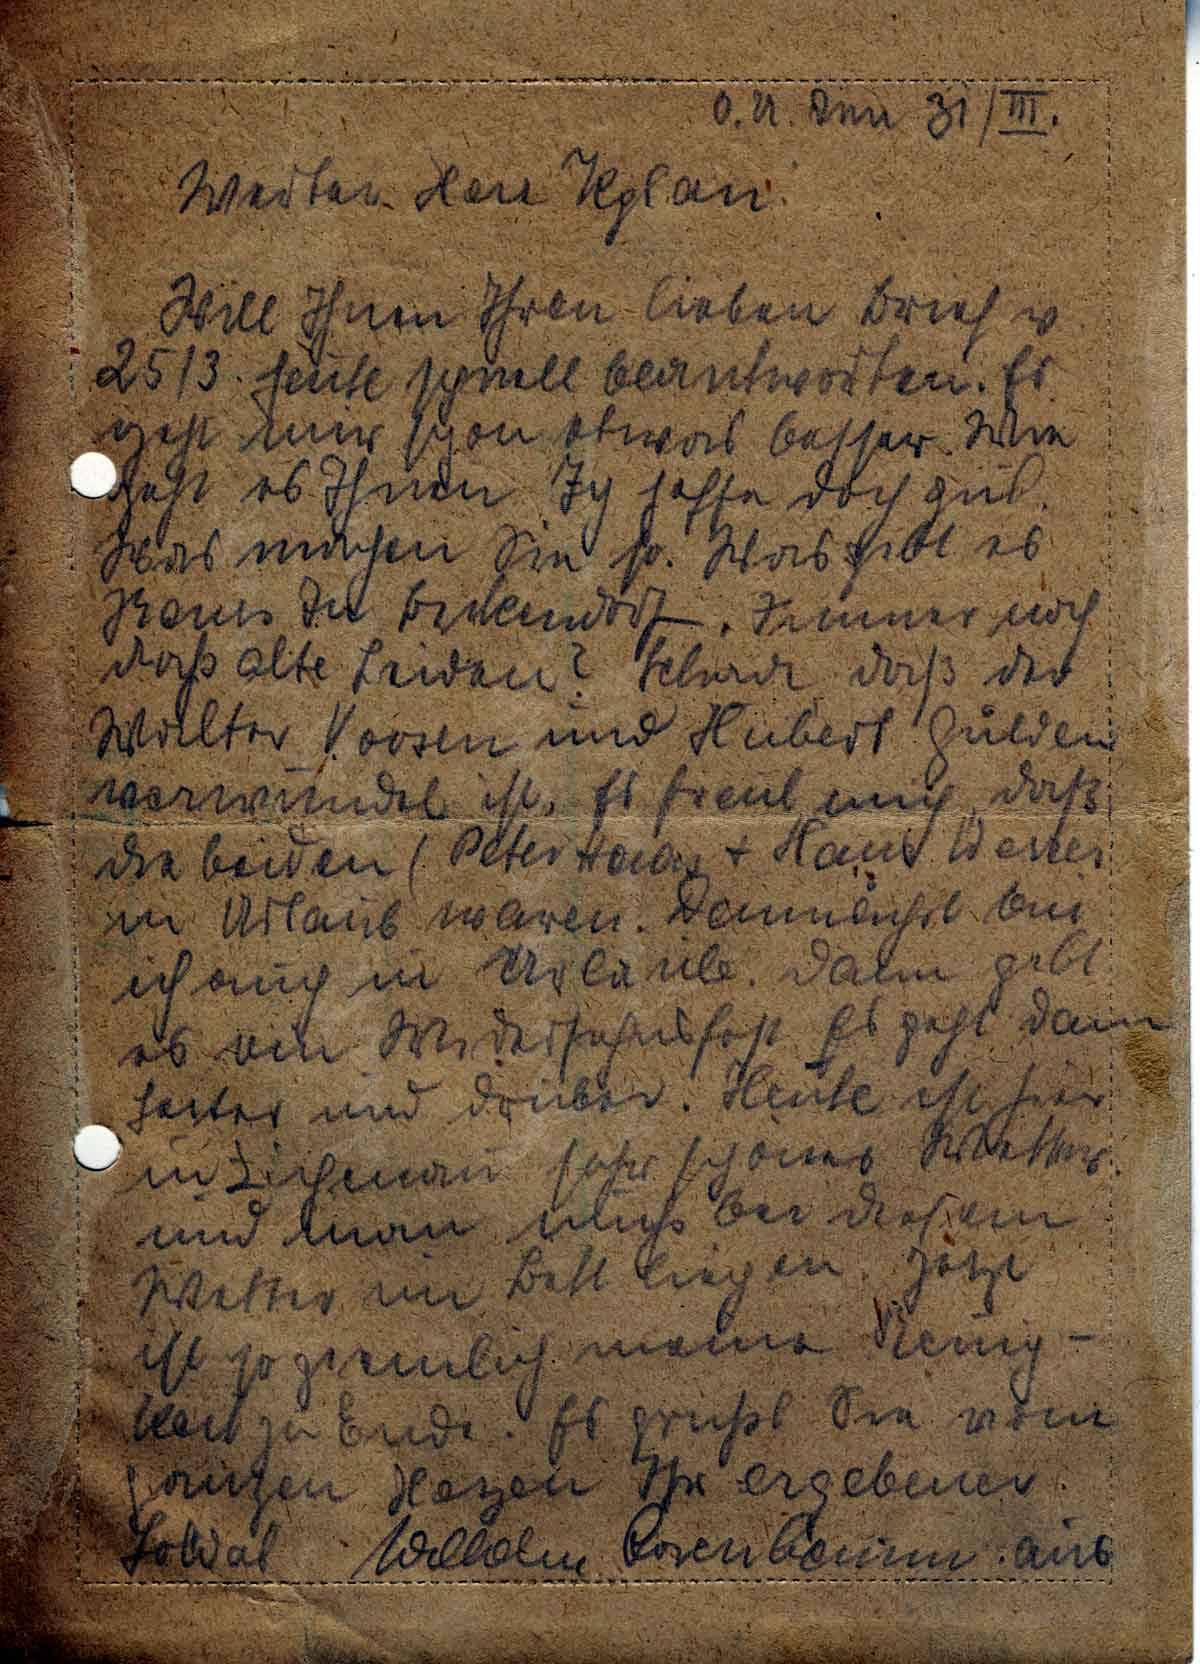 O.U. den 31/III.
Werter Herr Kplan
Will Ihnen Ihren lieben Brief v
25/3. heute schnell beantworten. Es
geht mir schon etwas besser. Wie
geht es Ihnen Ich hoffe doch gut.
Was machen Sie so. Was gibt es
Neues In Berkendorf. Immer noch
daß alte Leiden? Schade daß der
Walter Voosen und Hubert Gülden
verwundet ist. Es freut mich, daß
die beiden (Peter Haas + Hans Weiler
in Urlaub waren. Demnächst bin
ich auch in Urlaub. Dann gibt
es ein Widersehnsfest Es geht dann
and drüber. Heute ist hier
in Zichenau sehr schönes Wetter.
und man muß bei diesem
Wetter im Bett liegen. Jetzt
ist so ziemlich meine Neuig-
keit zu Ende. Es grüßt Sie vom
ganzen Herzen Ihr ergebener
Soldat Wilhelm Rosenbaum aus